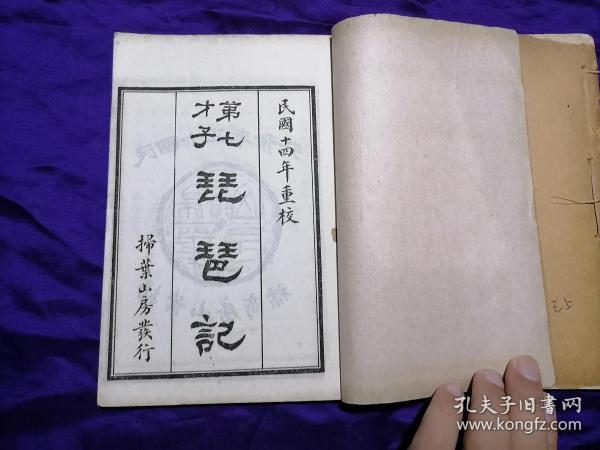 民國十四年重校
第七才子
琵琶記
掃葉山房發行
孔夫子旧书网
www.kongfz.com